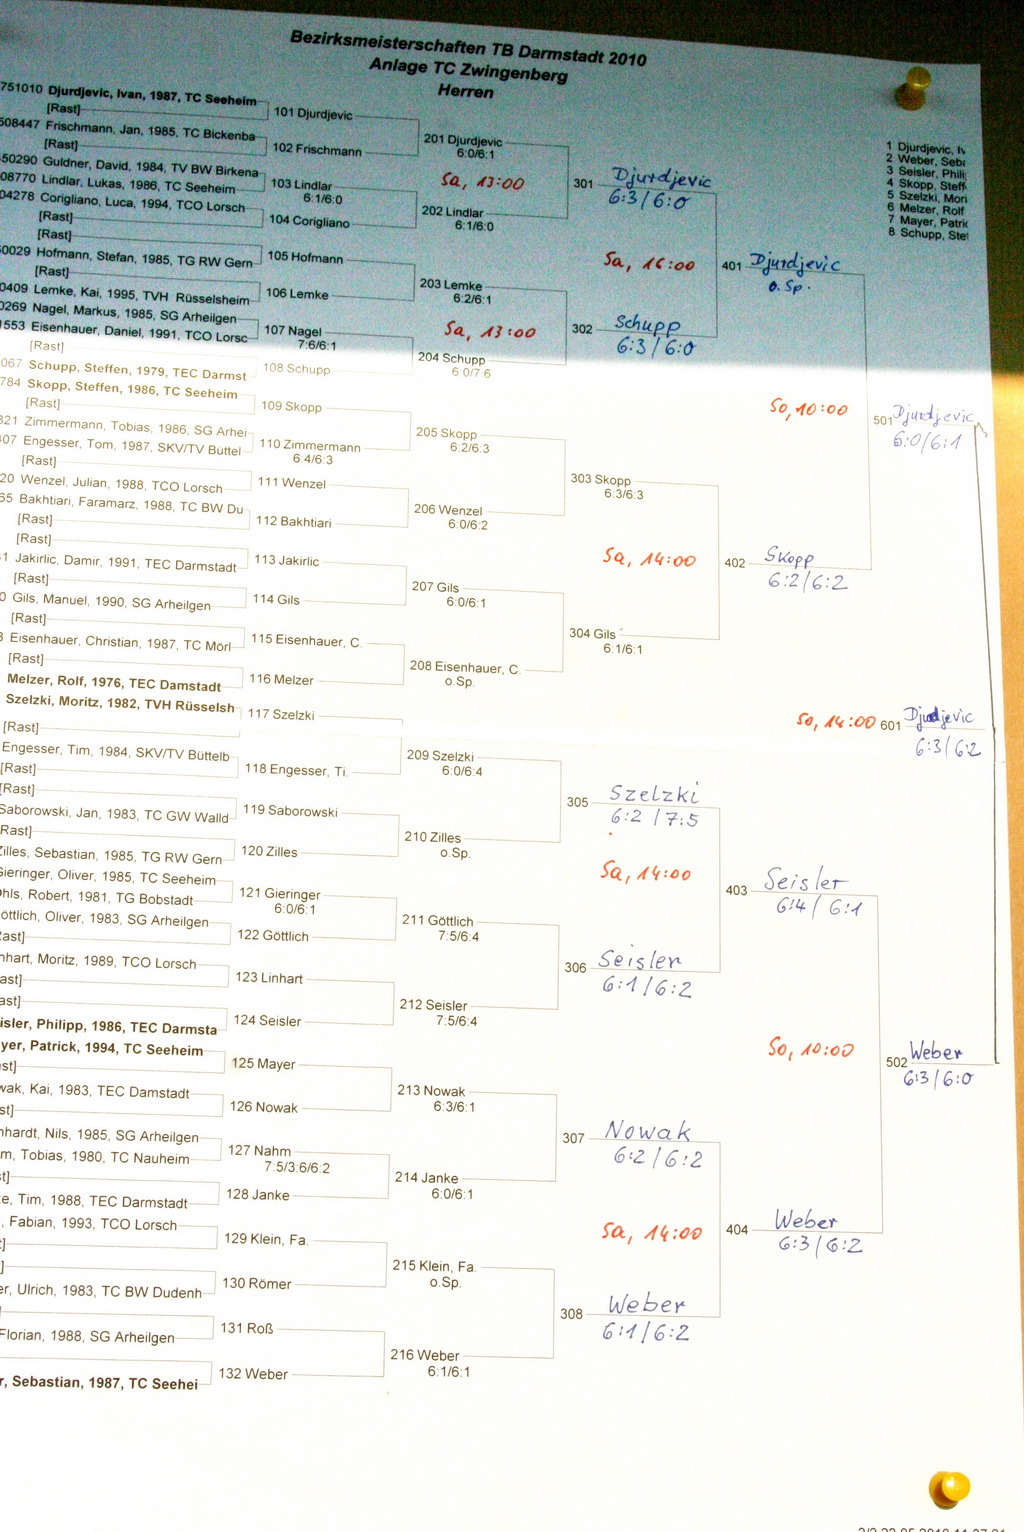 Bezirksmeisterschaften TB Darmstadt 2010
Anlage TC Zwingenberg
Herren
1 Djurdjevic, Iv
2 Weber, Seba
3 Seisler, Phili
4 Skopp, Steff
5 Szelzki, Mori
6 Melzer, Rolf
7 Mayer, Patric
8 Schupp, Stef
751010 Djurdjevic, Ivan, 1987, TC Seeheim
[Rast]
508447 Frischmann, Jan, 1985, TC Bickenba
[Rast]
50290 Guldner, David, 1984, TV BW Birkena
08770 Lindlar, Lukas, 1986, TC Seeheim
04278 Corigliano, Luca, 1994, TCO Lorsch
[Rast]
[Rast]
50029 Hofmann, Stefan, 1985, TG RW Gern
[Rast]
0409 Lemke, Kai, 1995, TVH Rüsselsheim
0269 Nagel, Markus, 1985, SG Arheilgen
1553 Eisenhauer, Daniel, 1991, TCO Lorsc
[Rast]
067 Schupp, Steffen, 1979, TEC Darmst
784 Skopp, Steffen, 1986, TC Seeheim
[Rast]
821 Zimmermann, Tobias, 1986, SG Arhei
407 Engesser, Tom, 1987, SKV/TV Büttel
[Rast]
20 Wenzel, Julian, 1988, TCO Lorsch
65 Bakhtiari, Faramarz, 1988, TC BW Du
[Rast]
[Rast]
Jakirlic, Damir, 1991, TEC Darmstadt
[Rast]
0 Gils, Manuel, 1990, SG Arheilgen
[Rast]
Eisenhauer, Christian, 1987, TC Mörl
[Rast]
Melzer, Rolf, 1976, TEC Damstadt
Szelzki, Moritz, 1982, TVH Rüsselsh
[Rast]
Engesser, Tim, 1984, SKV/TV Büttelb
[Rast]
[Rast]
Saborowski, Jan, 1983, TC GW Walld
Rast]
Zilles, Sebastian, 1985, TG RW Gern
Gieringer, Oliver, 1985, TC Seeheim
Ohls, Robert, 1981, TG Bobstadt
öttlich, Oliver, 1983, SG Arheilgen
Rast]
nhart, Moritz, 1989, TCO Lorsch
ast]
ast]
isler, Philipp, 1986, TEC Darmsta
yer, Patrick, 1994, TC Seeheim
st]
wak, Kai, 1983, TEC Damstadt
st]
nhardt, Nils, 1985, SG Arheilgen
m, Tobias, 1980, TC Nauheim
t]
e, Tim, 1988, TEC Darmstadt
, Fabian, 1993, TCO Lorsch
]
]
er, Ulrich, 1983, TC BW Dudenh
Florian, 1988, SG Arheilgen
r, Sebastian, 1987, TC Seehei
101 Djurdjevic
102 Frischmann
103 Lindlar
6:1/6:0
104 Corigliano
105 Hofmann
106 Lemke
107 Nagel
7:6/6:1
108 Schupp
109 Skopp
110 Zimmermann
6:4/6:3
111 Wenzel
112 Bakhtiari
113 Jakirlic
114 Gils
115 Eisenhauer, C.
116 Melzer
117 Szelzki
118 Engesser, Ti.
119 Saborowski
120 Zilles
121 Gieringer
6:0/6:1
122 Göttlich
123 Linhart
124 Seisler
125 Mayer
126 Nowak
127 Nahm
7:5/3:6/6:2
128 Janke
129 Klein, Fa.
130 Römer
131 Roß
132 Weber
201 Djurdjevic
6:0/6:1
Sa, 13:00
202 Lindlar
6:1/6:0
203 Lemke
6:2/6:1
Sa, 13:00
204 Schupp
6 0/7 6
205 Skopp
6:2/6:3
206 Wenzel
6:0/6:2
207 Gils
6:0/6:1
208 Eisenhauer, C.
o.Sp.
209 Szelzki
6:0/6:4
210 Zilles
o.Sp.
211 Göttlich
7:5/6:4
212 Seisler
7:5/6:4
213 Nowak
6:3/6:1
214 Janke
6:0/6:1
215 Klein, Fa.
o.Sp.
216 Weber
6:1/6:1
301 Djurdjevic
6:3/6:0
Sa, 16:00
302 Schupp
6:3/6:0
303 Skopp
6:3/6:3
Sa, 14:00
304 Gils
6:1/6:1
305 Szelzki
6:2/7:5
Sa, 14:00
306 Seisler
6:1/6:2
307 Nowak
6:2/6:2
Sa, 14:00
308 Weber
6:1/6:2
401 Djurdjevic
o. Sp.
So, 10:00
402 Skopp
6:2/6:2
403 Seisler
6:4/6:1
So, 10:00
404 Weber
6:3/6:2
501 Djurdjevic
6:0/6:1
So, 14:00 601 Djurdjevic
6:3/6:2
502 Weber
6:3/6:0